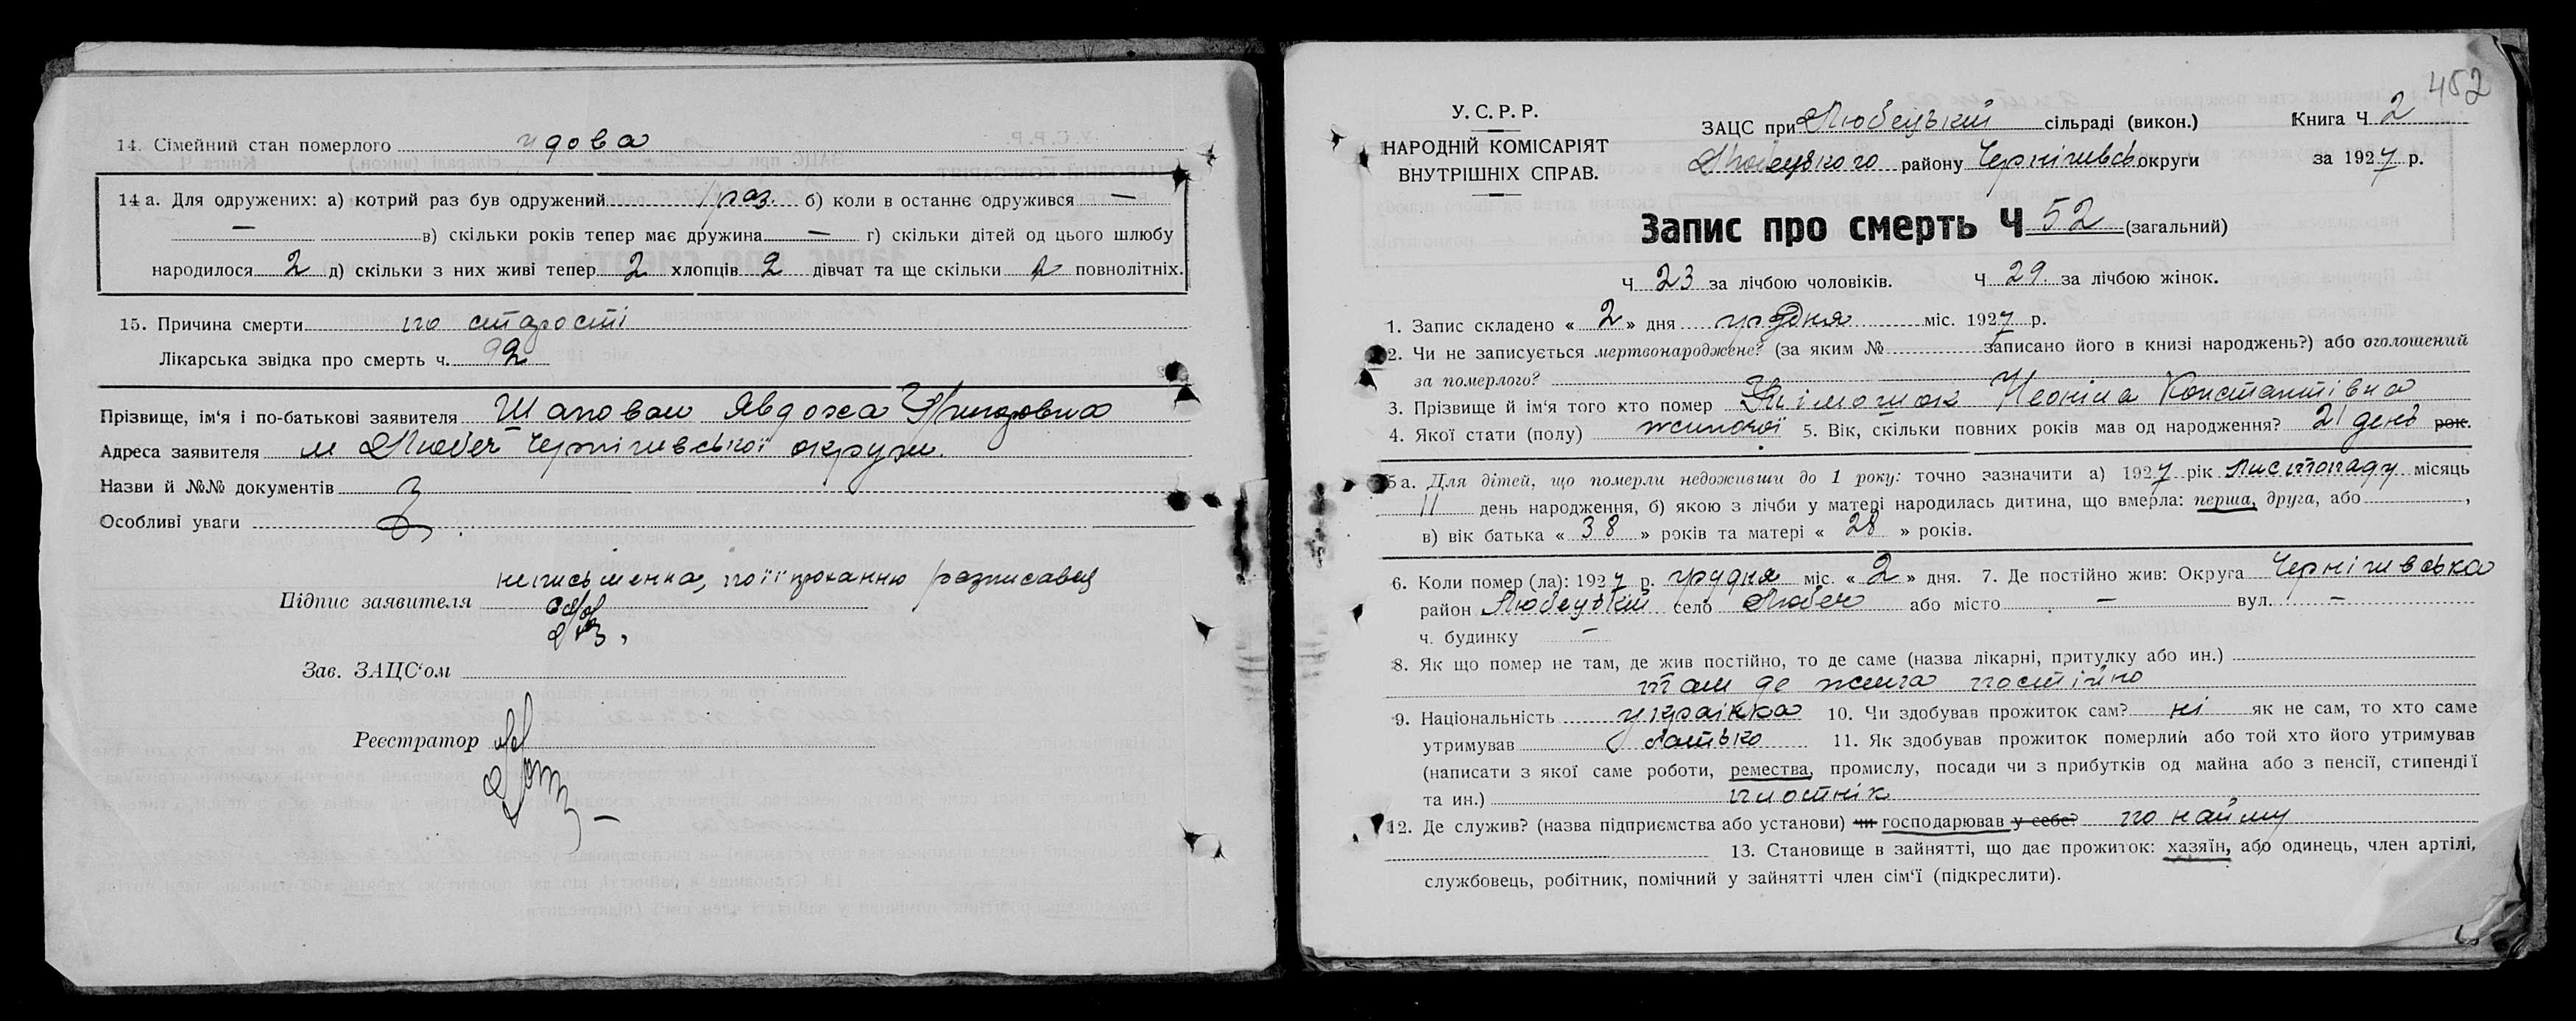 14. Сімейний стан померлого удова
14 а. Для одружених: а) котрий раз був одружений 1 раз. б) коли в останнє одружився —
— в) скільки років тепер має дружина — г) скільки дітей од цього шлюбу
народилося 2 д) скільки з них живі тепер 2 хлопців 2 дівчат та ще скільки 2 повнолітніх.
15. Причина смерти по старості
Лікарська звідка про смерть ч. 92
Прізвище, ім'я і по-батькові заявителя Шаповал Явдоха
Адреса заявителя м Любеч Чернігивської округи.
Назви й №№ документів
Особливі уваги
неписьменна, по її проханню розписавсь
Підпис заявителя
Зав. ЗАЦС'ом
Реєстратор
452
У. С. Р. Р.
НАРОДНІЙ КОМІСАРІЯТ
ВНУТРІШНІХ СПРАВ.
ЗАЦС при Любецькій сільраді (викон.) Книга Ч 2
Любецького району Чернігивсь округи за 1927 р.
Запис про смерть Ч 52 (загальний)
Ч 23 за лічбою чоловіків. Ч 29. за лічбою жінок.
1. Запис складено « 2 » дня грудня міс. 1927 р.
2. Чи не записується мертвонароджене? (за яким № записано його в книзі народжень?) або оголошений
за померлого?
3. Прізвище й ім'я того хто помер Леоніла Константівна
4. Якої стати (полу) жиночої 5. Вік, скільки повних років мав од народження? 21 день рок.
5а. Для дітей, що померли недоживши до 1 року: точно зазначити а) 1927 рік листопаду місяць
11 день народження, б) якою з лічби у матері народилась дитина, що вмерла: перша, друга, або ,
в) вік батька « 38 » років та матері « 28 » років.
6. Коли помер (ла): 1927 р. грудня міс. « 2 » дня. 7. Де постійно жив: Округа Чернігивська
район Любецький село Любеч або місто — вул. —
ч. будинку —
8. Як що помер не там, де жив постійно, то де саме (назва лікарні, притулку або ин.)
там де жила постійно
9. Національність украінка 10. Чи здобував прожиток сам? ні як не сам, то хто саме
утримував батько 11. Як здобував прожиток померлий або той хто його утримував
(написати з якої саме роботи, ремества, промислу, посади чи з прибутків од майна або з пенсії, стипендії
та ин.) плотнік
12. Де служив? (назва підприємства або установи) чи господарював у себе? по найму
13. Становище в зайнятті, що дає прожиток: хазяїн, або одинець, член артілі,
службовець, робітник, помічний у зайнятті член сім'ї (підкреслити).